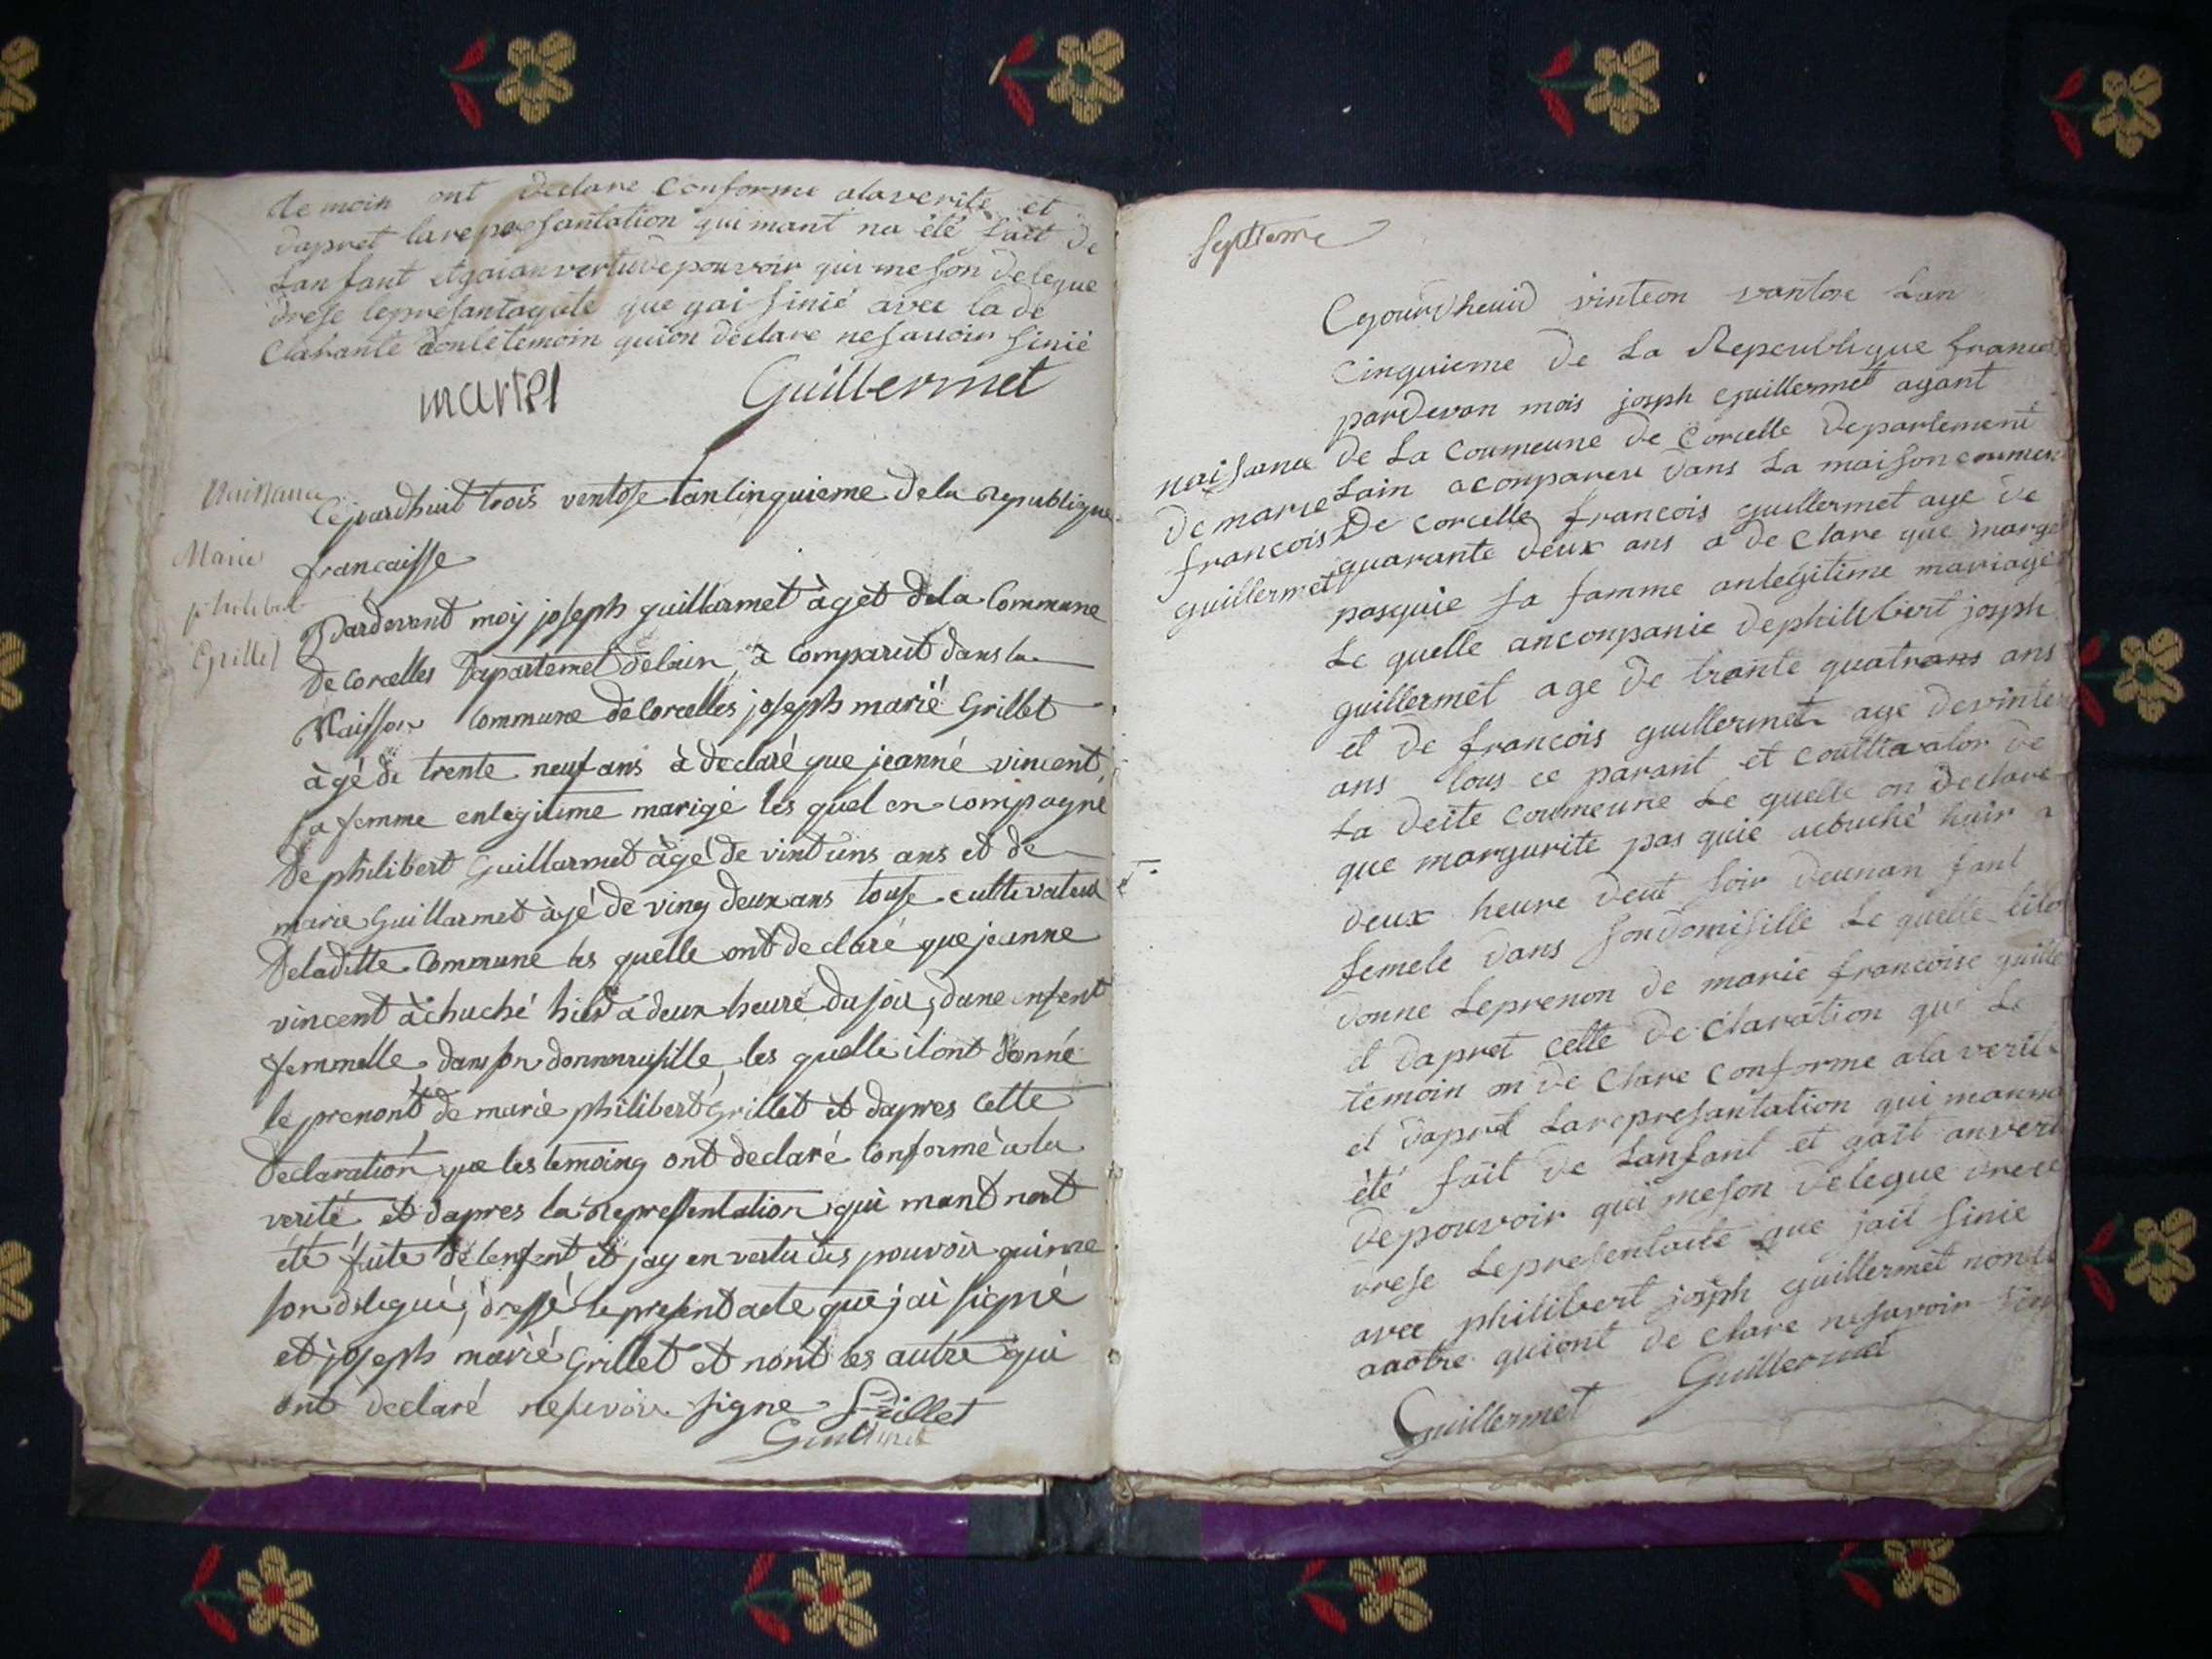 temoin ont declare conforme alaverite et
dapret larepresantation qui mant na été fait de
Lanfant et gai anvertu depouvoir qui me son delegue
drese lepresantaqute que gai sinié avec la de
Clarante donletemoin quion declare nesavoir sinié
martel Guillermet
Naissance
Marie
philibert
Grillet
Cejourdhuit trois ventose lan Cinquieme dela republique
francaisse
Pardevent moy joseph guillarmet àget dela Commune
de Corcelles Departemet de lain, à Comparut dans la
Maisson Commune de Corcelles joseph marié Grillet
àgé de trente neuf ans à declaré que jeanné vincent
sa femme enlegitime marigé les quel en compagné
de philibert Guillarmet àgé de vint uns ans et de
marie Guillarmet àgé de ving deux ans touse cultivateur
de laditte Commune les quelle ont declaré que jeanne
vincent à chuché hier a deux heure du soir, dune enfent
femmelle, dans son donmmisille les quelle ilont donné
le prenont de marié philibert Grillet et dapres Cette
declaration que les temoing ont declaré Conformé a la
verité et dapres la Representation qui mant nont
été faite de lenfent, et jay en vertu des pouvoir qui me
son delegué, dressé le present acte que j'ai signé
et joseph marié Grillet et nont les autre qui
ont declaré nesavoir signe Grillet
septieme
naisance
de marie
francois
guillermet
Cejourdheuid vinteon vantose Lan
Cinquieme de La Repeublique francoi
pardevan mois joseph guillermet agant
de La Coumeune de Corcelle departement
Lain aconpareu dans La maison coumeu
De corcelle francois guillermet age de
quarante deux ans a declare que marge
pasquie sa famme anlegitime mariage
Le quelle anconpanie dephilibert joseph
guillermet age de trante quatrans ans
et de francois guillermet age devinte
ans tous ce parant et coultivalor de
La deite coumeune Le quelle on declare
que margurite pas quie acouché huir a
deux heure deut soir deunan fant
femele dans sondomisille Le quelle lilo
donne Leprenon de marie francoise guille
et dapret cette declaration que Le
temoin on de Clare conforme alaverite
et dapret Larepresantation qui manna
été fait de Lanfant et gait anvert
depouvoir qui meson delegue drese
drese Lepresentacte que jait sinie
avec philibert joseph guillermet nonle
aaotre quiont de clare nesavoir
Guillermet Guillermet